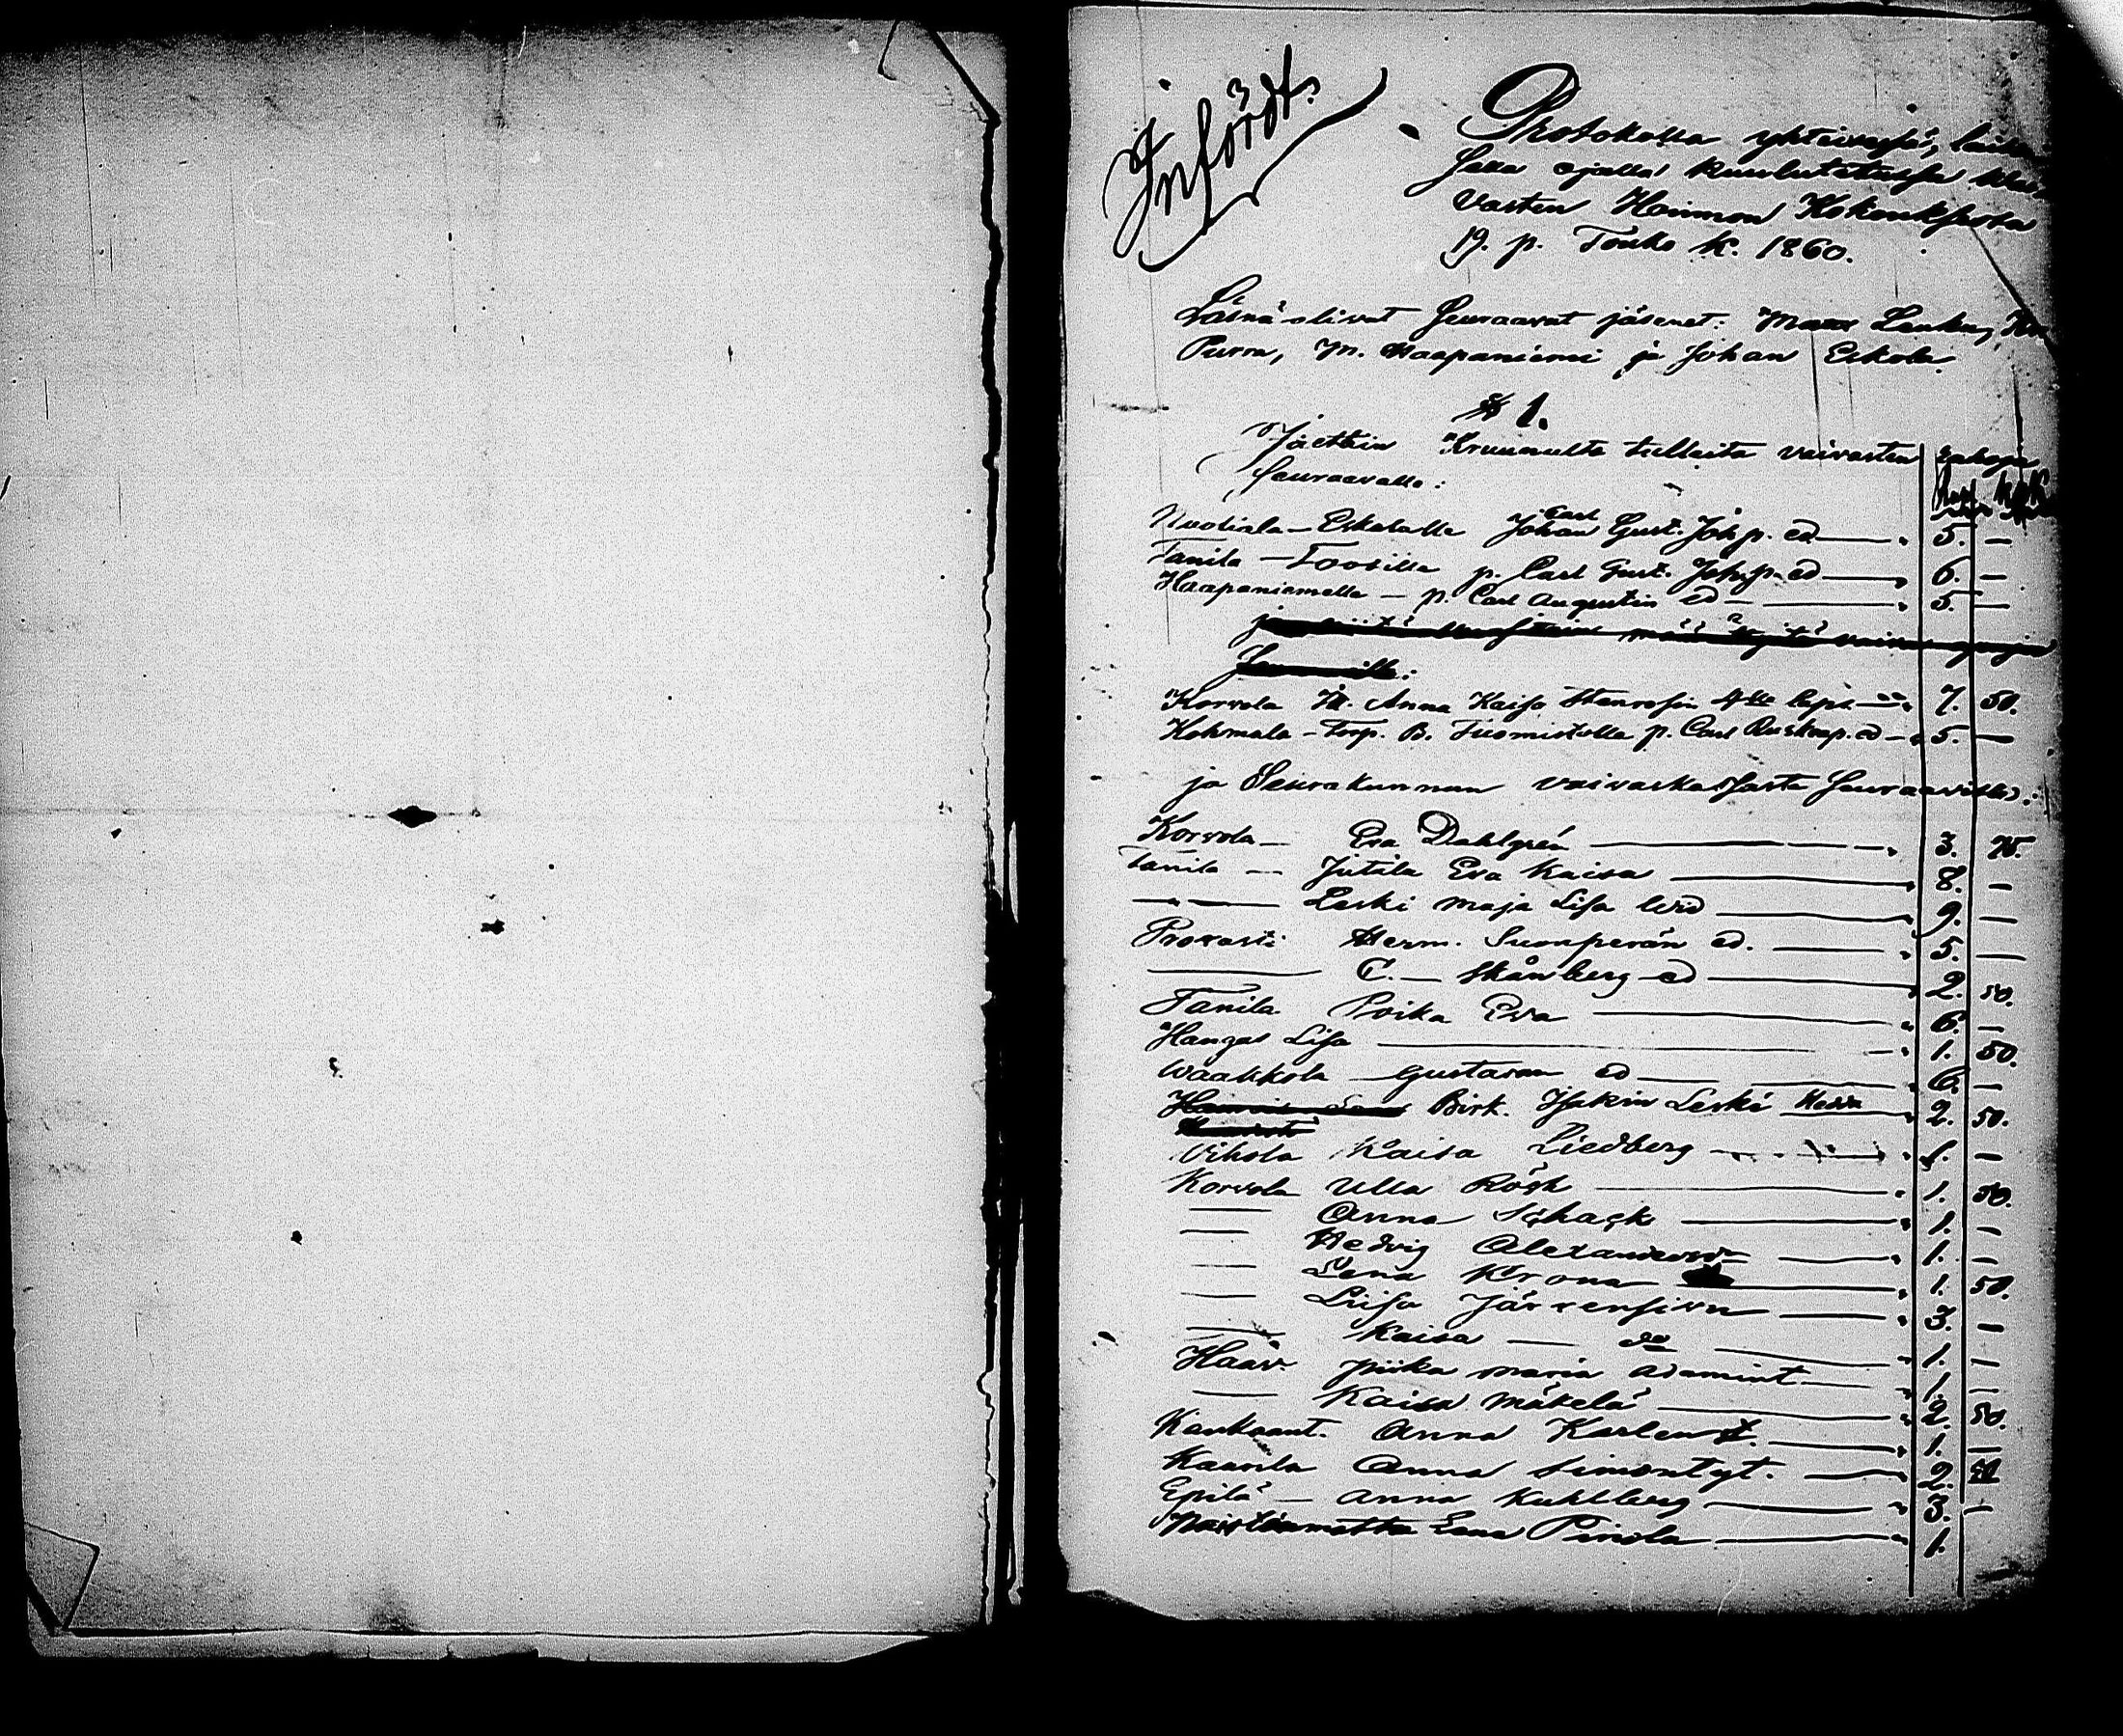 Infördt.
Protokolla yhteisesä,
Jällä ajalla kuulutetussa
Vasten Hoinnon Kokouksesta
19. p. Touko K. 1860.
Läsnä olivat Seuraavat jäsenet: Matts Leuku,
Purra, M. Haapaniemi ja Johan Eskola.
§ 1.
Jaettiin Kruunulta tulleita vaivasten rahoja
Seuraavalle:
Nuotiala - Eskolalle Johan Carl Gust. Joh p. ed — 5. —
Tanila - Toosilla p. Carl Gust. Joh. p. ed — 6. —
Haapaniemelle — p. Carl Augustin ed — 5. —
Korvola Anna Kaisa Stenrosin laps — 7. 50.
Kohmala - Torp. B. Tuomistolle p. Carl Oskarp. ed — 5. —
ja Seurakunnan vaivaskassasta Seuraaville:
Korvola — Eva Dahlgrén — 3. 75.
Tanila — Jutila Eva Kaisa — 8. —
— — Leski Maja Lisa — 9. —
Provasti Herm. Suonperän ed. — 5. —
— C. — Skånberg ed — 2. 50.
Tanila Poika Eva — 6. —
Hangas Lisa — 1. 50.
Waakkola Gustavan ed — 6. —
Birk. Isakin Leski Hedda — 2. 50.
Vihola Kaisa Liedberg — 1. —
Korvola Ulla Rösk — 1. 50.
— Anna Schack — 1. —
— Hedvig Alexandersdr — 1. —
— Lena Krona — 1. 50.
— Liisa Järvensivu — 3. —
— Kaisa — do — 1. —
Haav. piika Maria Adamint — 1. —
— Kaisa Mäkelä — 2. 50.
Kaukaant. Anna Karlen t. — 1. —
Kaarila Anna Simontyt. — 2. 50
Epilä — Anna Kuhlberg — 3. —
Lena Pirola — 1.